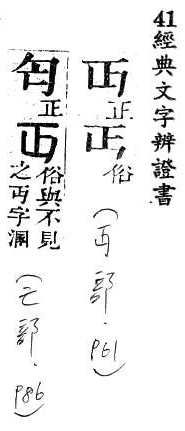 41經典文字辨證書
丏正丐俗(丏部.p61)
匃正丏俗與不見之丏字溷(亡部.p86)